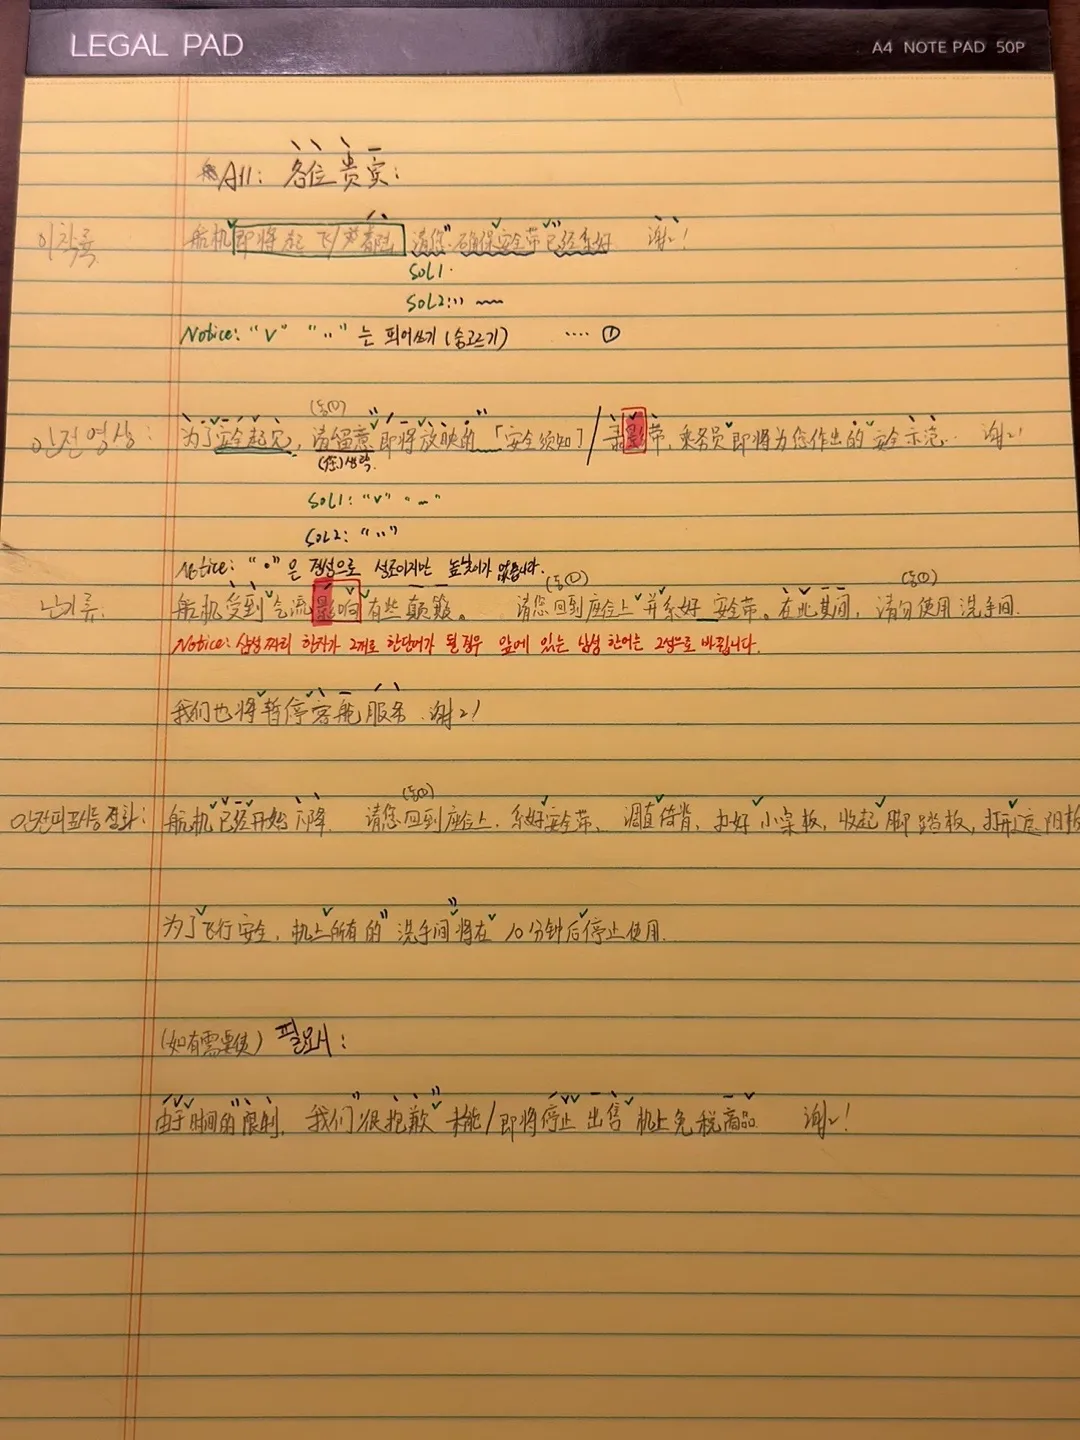 LEGAL PAD
A4 NOTE PAD 50P
All: 各位贵宾:
이착륙 航机即将起飞/着陆 请您确保安全带已经系好 谢谢!
SOL1.
SOL2:
Notice: "V" "،،" 는 띄어쓰기 (숨고르기) .... ①
(동①)
안전영상: 为了安全起见, 请留意即将放映的「安全须知」/录影带, 乘务员即将为您作出的安全示范. 谢谢!
(您)생략.
SOL1: "V" "—"
SOL2: "،،"
Notice: "•"은 경성으로 성조이지만 높낮이가 없습니다.
(동①) (동①)
난기류: 航机受到气流影响有些颠簸。 请您回到座位上并系好安全带。在此其间, 请勿使用洗手间.
Notice: 삼성짜리 한자가 2개로 한단어가 될 경우 앞에 있는 삼성 한어는 2성으로 바뀝니다.
我们也将暂停客舱服务. 谢谢!
(동①)
航机已经开始下降. 请您回到座位上, 系好安全带, 调直倚背, 扣好小桌板, 收起脚踏板, 打开遮阳板
为了飞行安全, 机上所有的洗手间将在10分钟后停止使用.
(如有需要) 필요시:
由于时间的限制, 我们很抱歉 未能/即将停止出售机上免税商品. 谢谢!